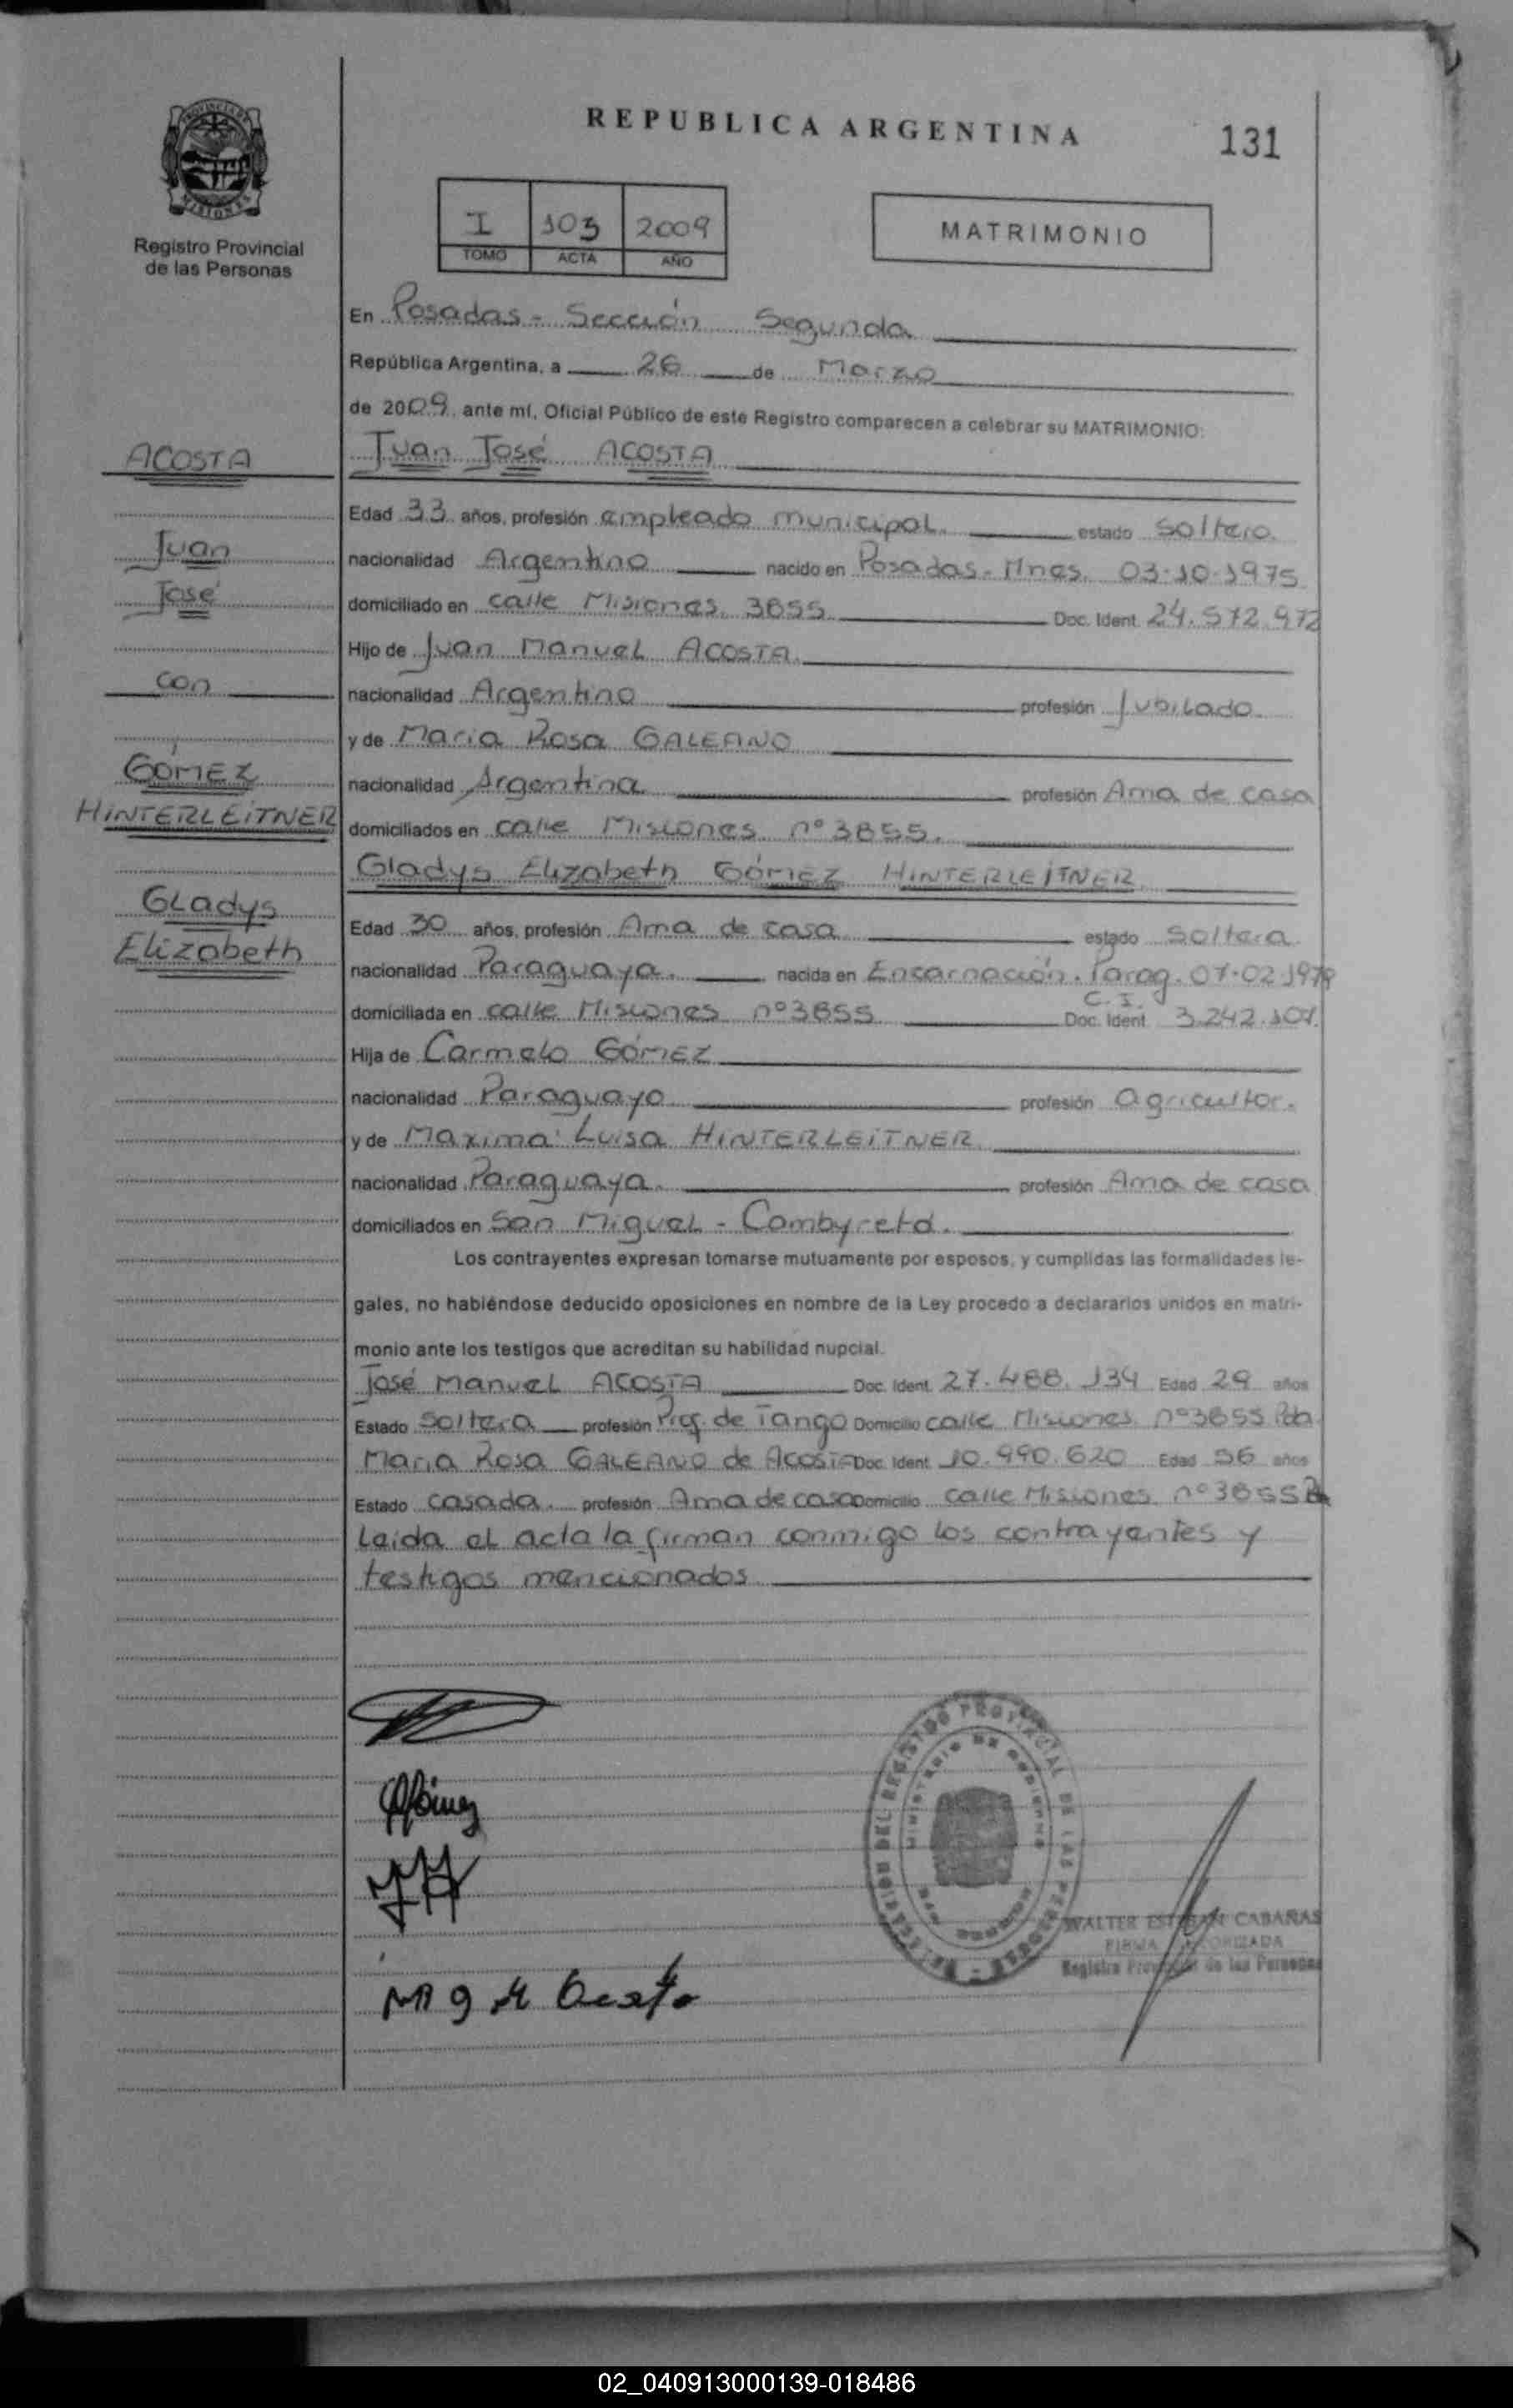 REPUBLICA ARGENTINA
131
PROVINCIA DE
MISIONES
Registro Provincial
de las Personas
I 103 2009
TOMO ACTA AÑO
MATRIMONIO
En Posadas - Sección Segunda
República Argentina, a 26 de Marzo
de 2009, ante mí, Oficial Público de este Registro comparecen a celebrar su MATRIMONIO:
ACOSTA
Juan José ACOSTA
Edad 33 años, profesión empleado municipal. estado soltero.
Juan
nacionalidad Argentino nacido en Posadas - Mnes. 03-10-1975
José
domiciliado en calle Misiones 3855 Doc. Ident. 24.572.972
Hijo de Juan Manuel ACOSTA.
con
nacionalidad Argentino profesión Jubilado.
y de María Rosa GALEANO
GÓMEZ
nacionalidad Argentina profesión Ama de casa
HINTERLEITNER
domiciliados en calle Misiones nº 3855.
Gladys Elizabeth GÓMEZ HINTERLEITNER
Gladys
Edad 30 años, profesión Ama de casa estado soltera.
Elizabeth
nacionalidad Paraguaya. nacida en Encarnación. Parag. 07-02-1979
domiciliada en calle Misiones nº3855 C.I. Doc. Ident. 3.242.107.
Hija de Carmelo GÓMEZ
nacionalidad Paraguayo profesión agricultor.
y de Maxima Luisa HINTERLEITNER
nacionalidad Paraguaya. profesión Ama de casa
domiciliados en San Miguel - Cambyretá.
Los contrayentes expresan tomarse mutuamente por esposos, y cumplidas las formalidades le-
gales, no habiéndose deducido oposiciones en nombre de la Ley procedo a declararlos unidos en matri-
monio ante los testigos que acreditan su habilidad nupcial.
José Manuel ACOSTA Doc. Ident. 27.488.134 Edad 29 años
Estado soltero profesión Prof. de Tango Domicilio calle Misiones nº3855 Pda
María Rosa GALEANO de ACOSTA Doc. Ident. 10.990.620 Edad 56 años
Estado casada. profesión Ama de casa Domicilio calle Misiones nº3855
Leida el acta la firman conmigo los contrayentes y
testigos mencionados
DEL REGISTRO PROVINCIAL DE LAS PERSONAS
MINISTERIO DE GOBIERNO
WALTER ESTEBAN CABAÑAS
FIRMA AUTORIZADA
Registro Provincial de las Personas
02_040913000139-018486